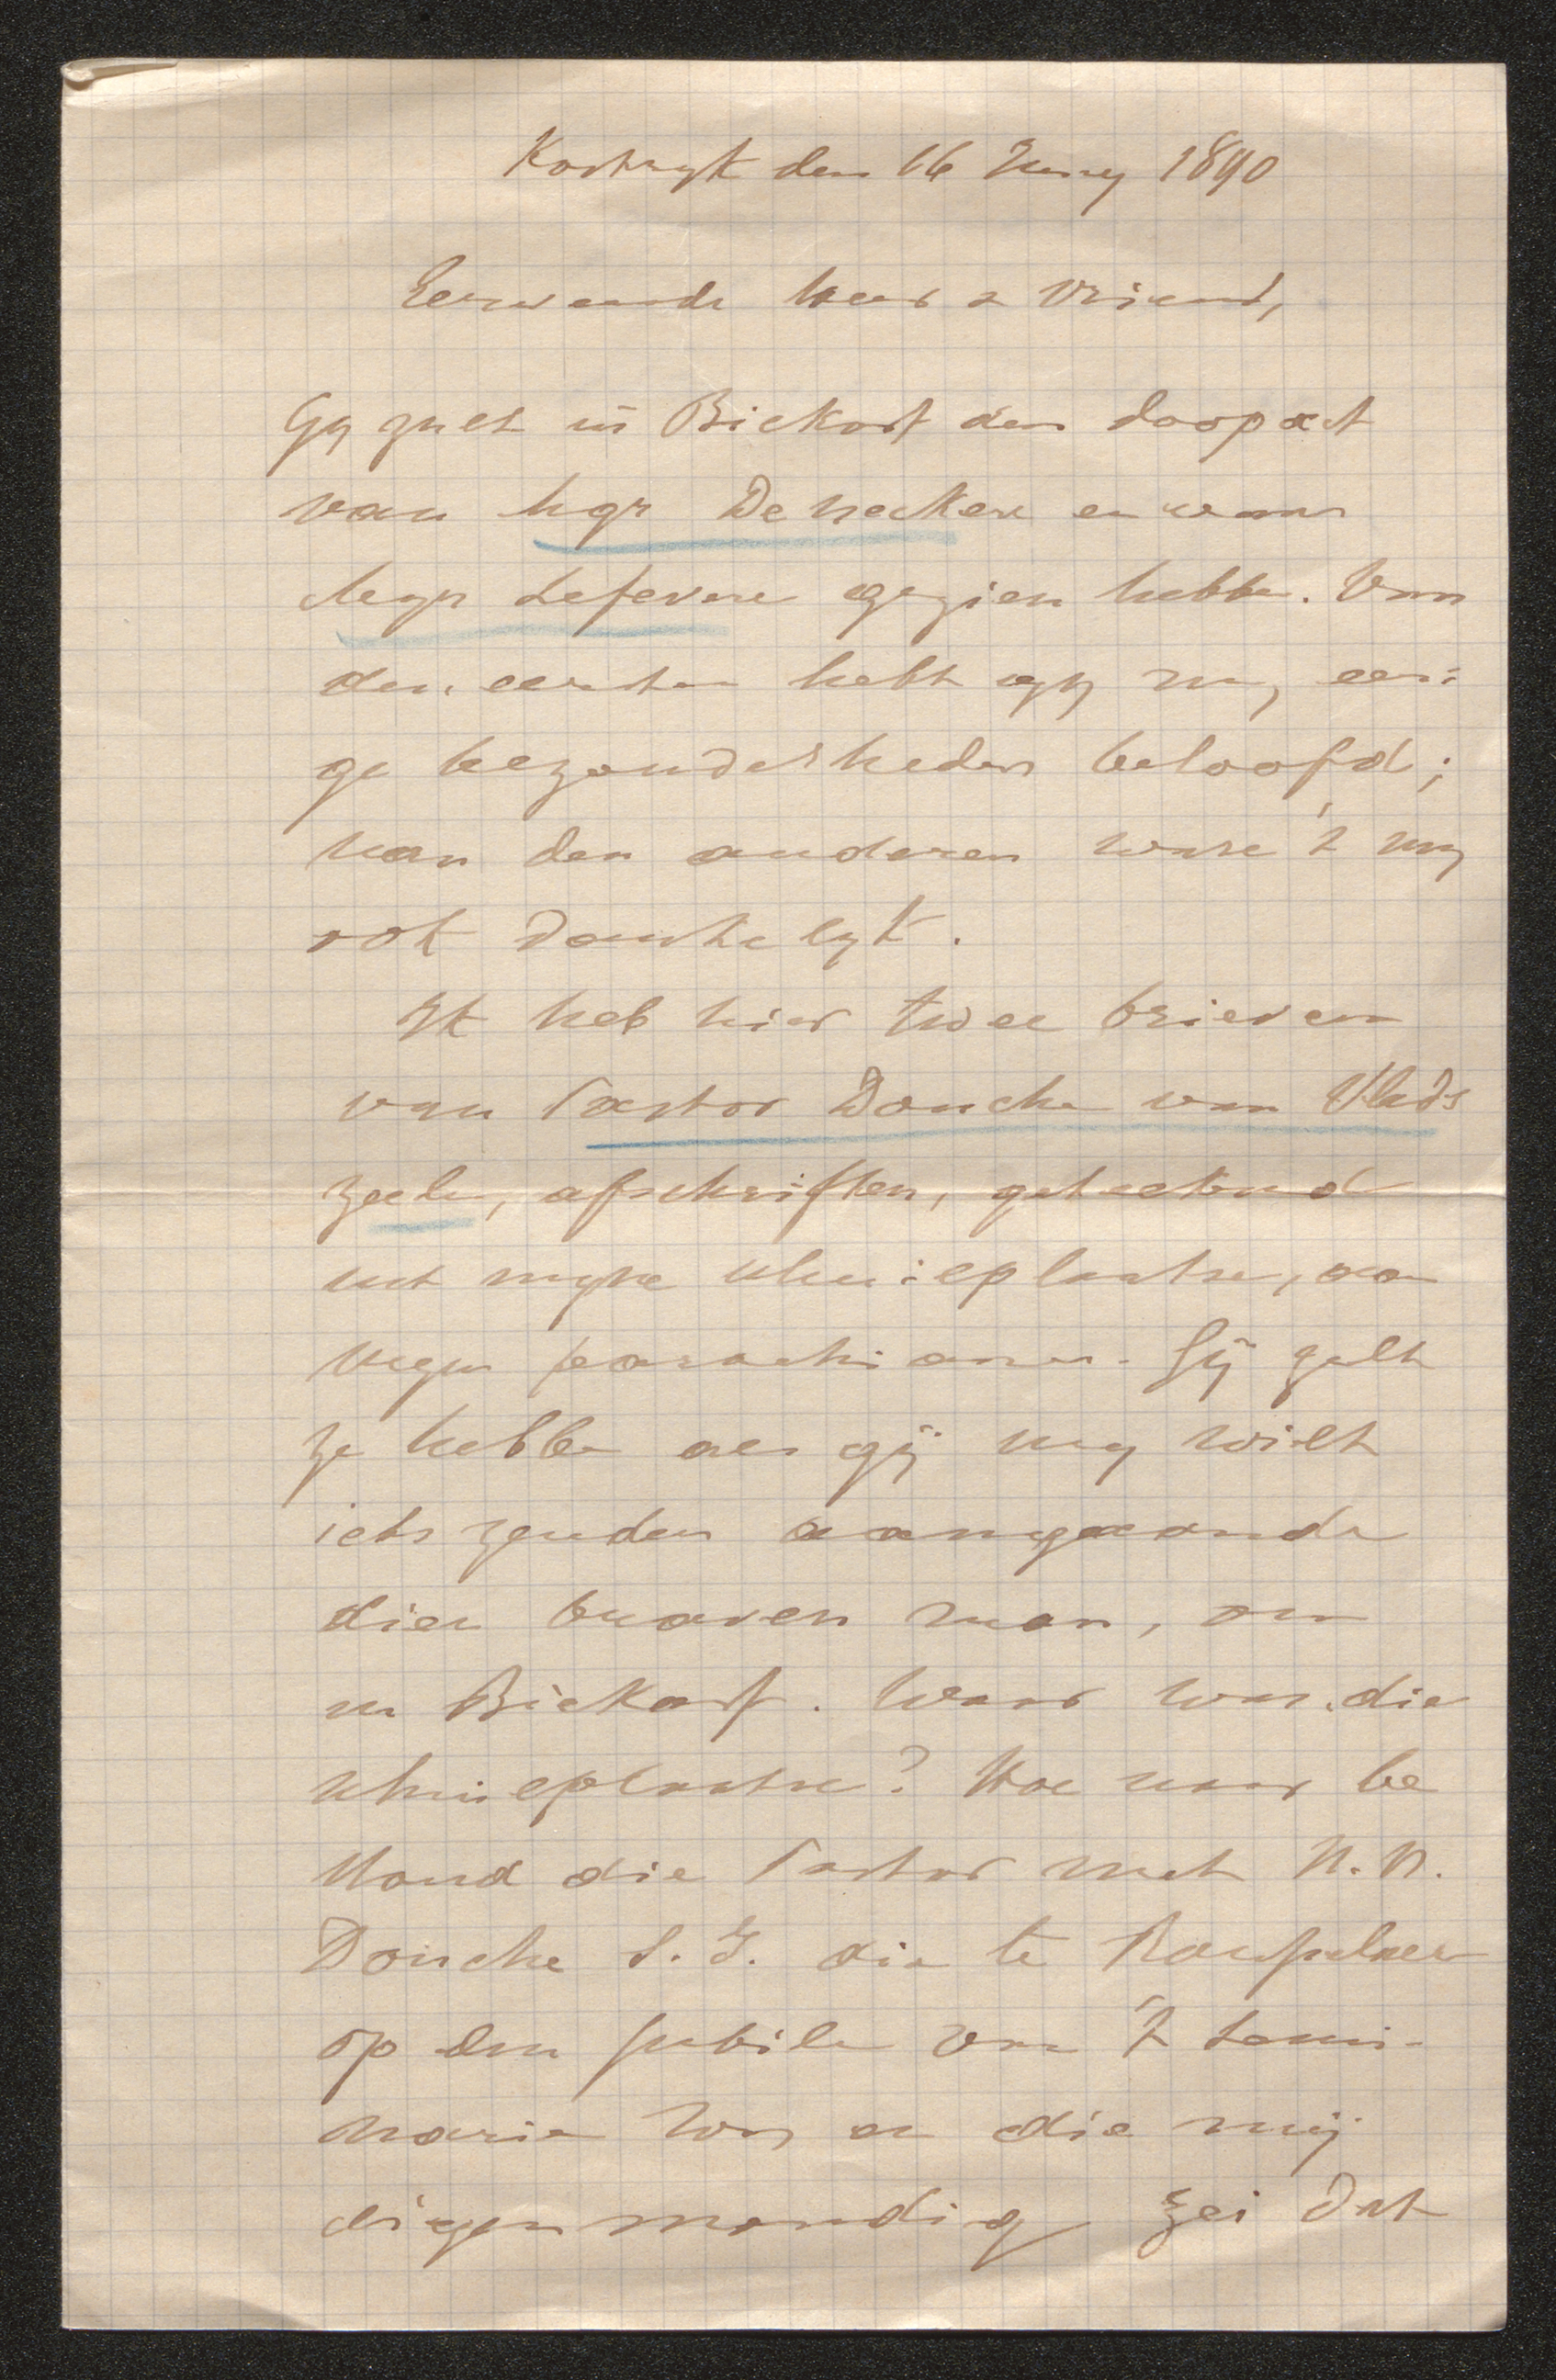 Kortryk den 16 Juny 1890
Eerweerde heer & vriend,
Gy zult in Biekorf den doopact
van Mgr De Neckere en van
Mgr Lefevere gezien hebben. Van
den eersten hebt gy my eeni
ge bezonderheden beloofd;
van den anderen ware 't my
ook dankelyk.
Ik heb hier twee brieven
van Pastor Douche van Vlads
zeele, afschriften, geteekend
uit myne schuileplaatse, aan
myn parochianen. Gij zult
ze hebben als gij my wilt
iets zenden aangaande
dien braven man, om
in Biekorf. Waar was die
schuileplaatse? Hoe naar be
stond die Pastor met N. N.
Douche S. J. die te Rousselaere
op den jubile van 't semi-
narie was en die mij
eigenmondig zei dat